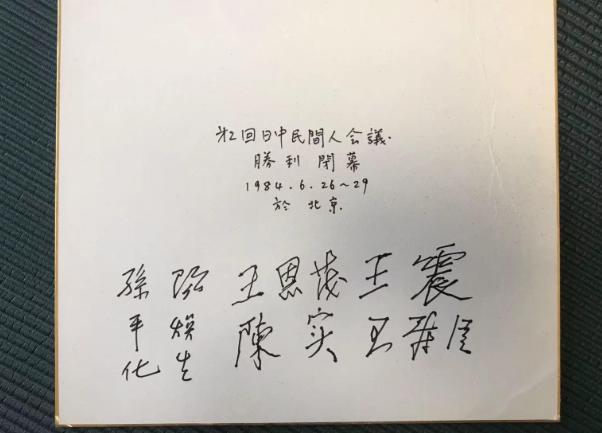 才2回日中民間人会議.
勝利 閉幕
1984.6.26~29
於 北京
孫平化
焕生
王恩茂
王震
陳实
王